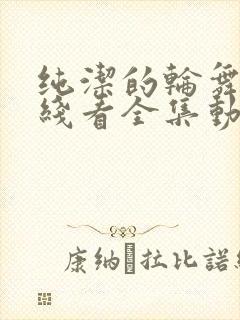 纯潔的輪舞
綫看全集動
康纳拉比諾